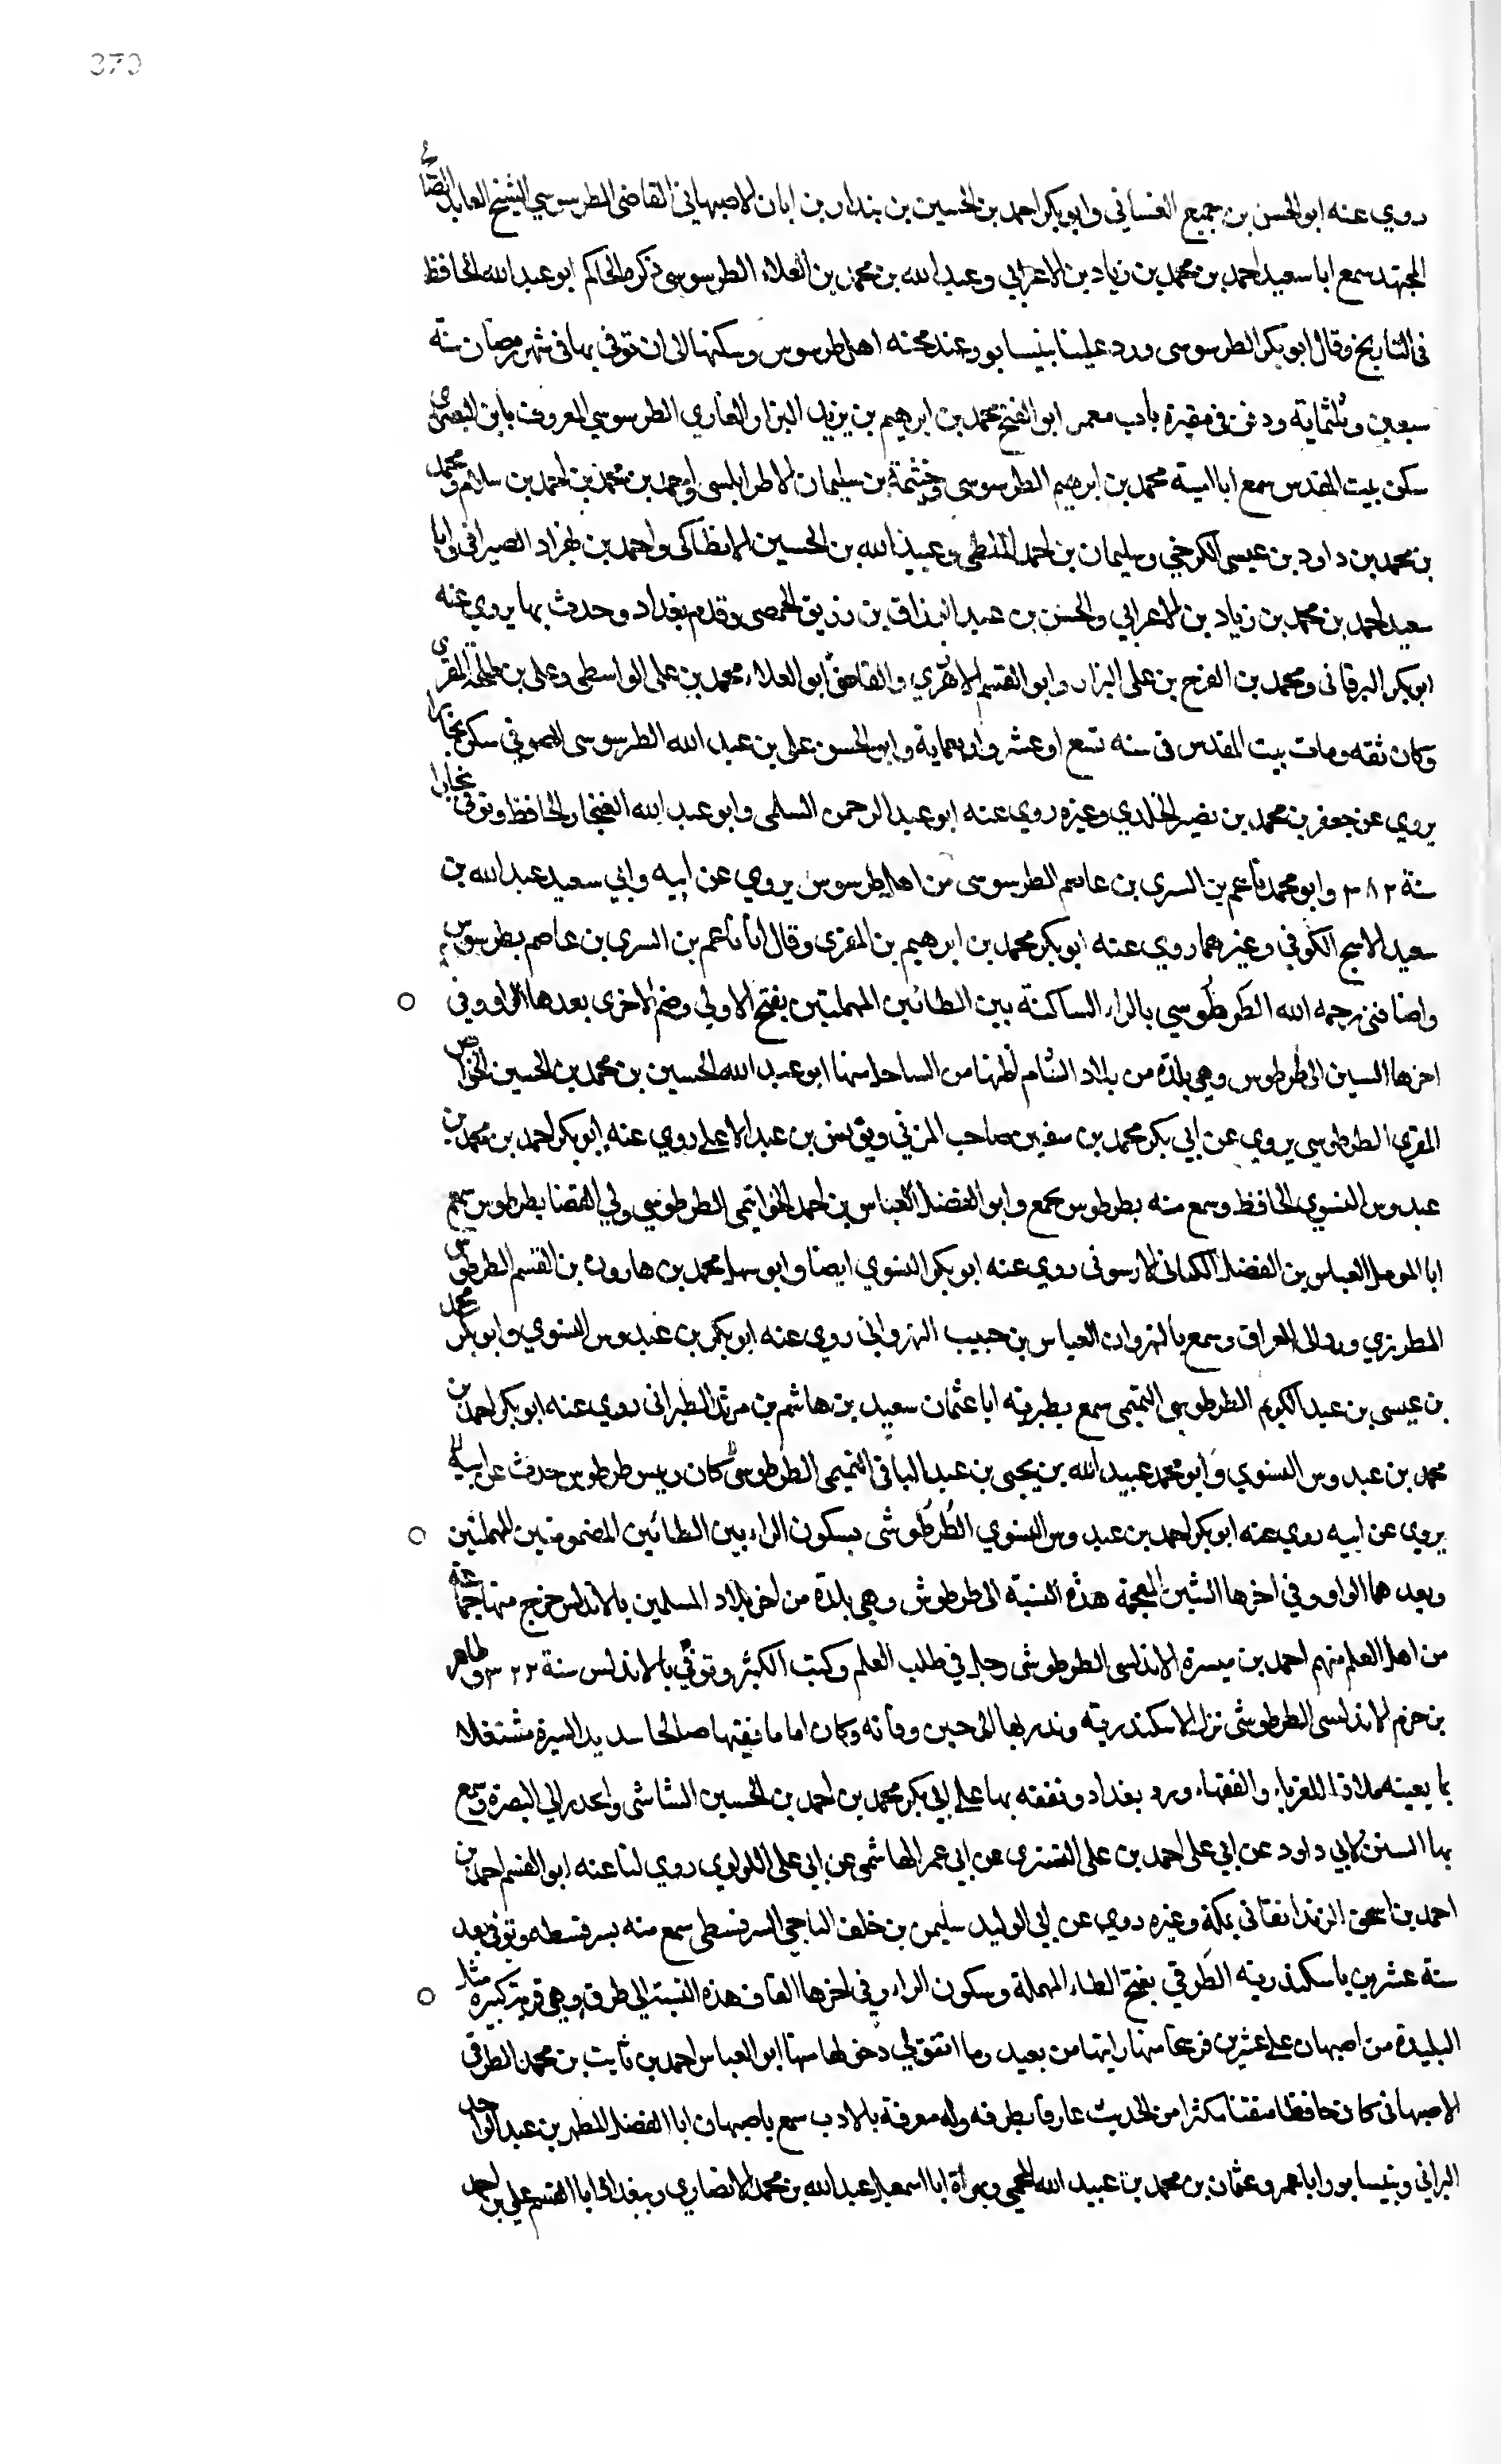 370
روي عنه ابو الحسن بن جميع الغساني وابو بكر احمد بن الحسين بن بندار بن ابان الاصبهاني القاضي الطرسوسي الشيخ العابد
المجتهد سمع ابا سعيد احمد بن محمد بن زياد بن الاعرابي وعبد الله بن محمد بن العلاء الطرسوسي ذكره الحاكم ابو عبد الله الحافظ
في التاريخ وقال ابو بكر الطرسوسي ورد علينا بنيسابور عند محنه اهل طرسوس وسكنها الى ان توفي بها في شهر رمضان سنة
سبعين وثلثماية ودفن في مقبرة باب معمر ابو الفتح محمد بن ابرهيم بن يزيد البزار الغازي الطرسوسي المعروف بابن البصري
سكن بيت المقدس سمع ابا امية محمد بن ابرهيم الطرسوسي وخيثمة بن سليمان الاطرابلسي واحمد بن محمد بن احمد بن سلام ومحمد
بن محمد بن داود بن عيسى الكرخي وسليمان بن احمد الملطي وعبيد الله بن الحسين الانطاكي واحمد بن بهزاد الصيرافي وابا
سعيد احمد بن محمد بن زياد بن الاعرابي والحسن بن عبد الرزاق بن رزيق الحمصي وقدم بغداد وحدث بها يروي عنه
ابو بكر البرقاني ومحمد بن الفرج بن على البزار وابو القسم الازهري والقاضي ابو العلاء محمد بن على الواسطى وعلى بن طلحة المقري
وكان ثقه ومات ببيت المقدس في سنه تسع او عشر واربعماية وابو الحسن على بن عبد الله الطرسوسي الصوفي سكن بخارا
يروي عن جعفر بن محمد بن نصير الخلدي وغيره روي عنه ابو عبد الرحمن السلمى وابو عبد الله الغنجار الحافظ وتوفي بخارا
سنة ٣٨٢ وابو محمد ناعم بن السرى بن عاصم الطرسوسى من اهل طرسوس يروي عن ابيه وابي سعيد عبد الله بن
سعيد الاشج الكوفي وغيرهما روي عنه ابو بكر محمد بن ابرهيم بن المقرى وقال انا ناعم بن السرى بن عاصم بطرسوس
واضافني رحمه الله الطَرطُوسي بالراء الساكنة بين الطائين المهملتين بفتح الاولي وضم الاخرى بعدها الواو وفي
اخرها السين الى طرطوس وهي بلدة من بلاد الشام اظنها من الساحل منها ابو عبد الله الحسين بن محمد بن الحسين الخواص
المقري الطرطوسي يروي عن ابي بكر محمد بن سفين صاحب المزني ويونس بن عبد الاعلي روي عنه ابو بكر احمد بن محمد بن
عبدوس النسوي الحافظ وسمع منه بطرطوس بجمع وابو الفضل العباس بن احمد الخواتمي الطرطوسي ولي القضا بطرطوس سمع
ابا المومل العباس بن الفضل الكناني الارسوفى روي عنه ابو بكر النسوي ايضا وابو سهل محمد بن هارون بن القسم الطرطوسي
المطرزي ورد الى العراق وسمع بالنهروان العباس بن حبيب النهرواني روي عنه ابو بكر بن عبدوس النسوي وابو بكر محمد
بن عيسى بن عبد الكريم الطرطوسي التميمى سمع بطبرية ابا عثمان سعيد بن هاشم بن مرثد الطبراني روي عنه ابو بكر احمد بن
محمد بن عبدوس النسوي وابو محمد عبيد الله بن يحيى بن عبد الباقي التميمى الطرطوسى كان رييس طرطوس حدث عن ابيه
يروي عن ابيه روي عنه ابو بكر احمد بن عبدوس النسوي الطُرطُوشى بسكون الراء بين الطائين المضمومتين المهملتين
وبعدهما الواو وفي اخرها الشين المعجمة هذه النسبة الى طرطوش وهي بلدة من اخر بلاد المسلمين بالاندلس خرج منها جماعة
من اهل العلم منهم احمد بن ميسرة الاندلسى الطرطوشى رحل في طلب العلم وكتب الكثير وتوفي بالاندلس سنة ٣٢٢ وطاهر
بن حزم الاندلسى الطرطوشى نزل الاسكندرية وتدير بها الى حين وفاته وكان اماما فقيها صالحا سديد السيرة مشتغلا
بما يعينه ملاذا للغرباء والفقهاء ورد بغداد وتفقه بها علي ابي بكر محمد بن احمد بن الحسين الشاشى وانحدر الي البصرة وسمع
بها السنن لابي داود عن ابي على احمد بن على التسترى عن ابي عمر الهاشمي عن ابي على اللولوي روي لنا عنه ابو القسم احمد بن
احمد بن اسحق الزندانقاني بمكة وغيره روي عن ابي الوليد سليمن بن خلف الباجي السرقسطى سمع منه بسرقسطه وتوفي بعد
سنة عشرين باسكندرية الطَرقي بفتح الطاء المهملة وسكون الراء وفي اخرها القاف هذه النسبة الي طرق وهي قرية كبيرة مثل
البليدة من اصبهان علي عشرين فرسخا منها رايتها من بعيد وما اتفق لي دخولها منها ابو العباس احمد بن ثابت بن محمد الطرقي
الاصبهاني كان حافظا متقنا مكثرا من الحديث عارفا بطرقه وله معرفة بالادب سمع باصبهان ابا الفضل المطهر بن عبد الواحد
البزاني وبنيسابور ابا عمرو عثمان بن محمد بن عبيد الله المحمي وبهراة ابا اسمعيل عبد الله بن محمد الانصاري وببغداد ابا القسم علي بن احمد